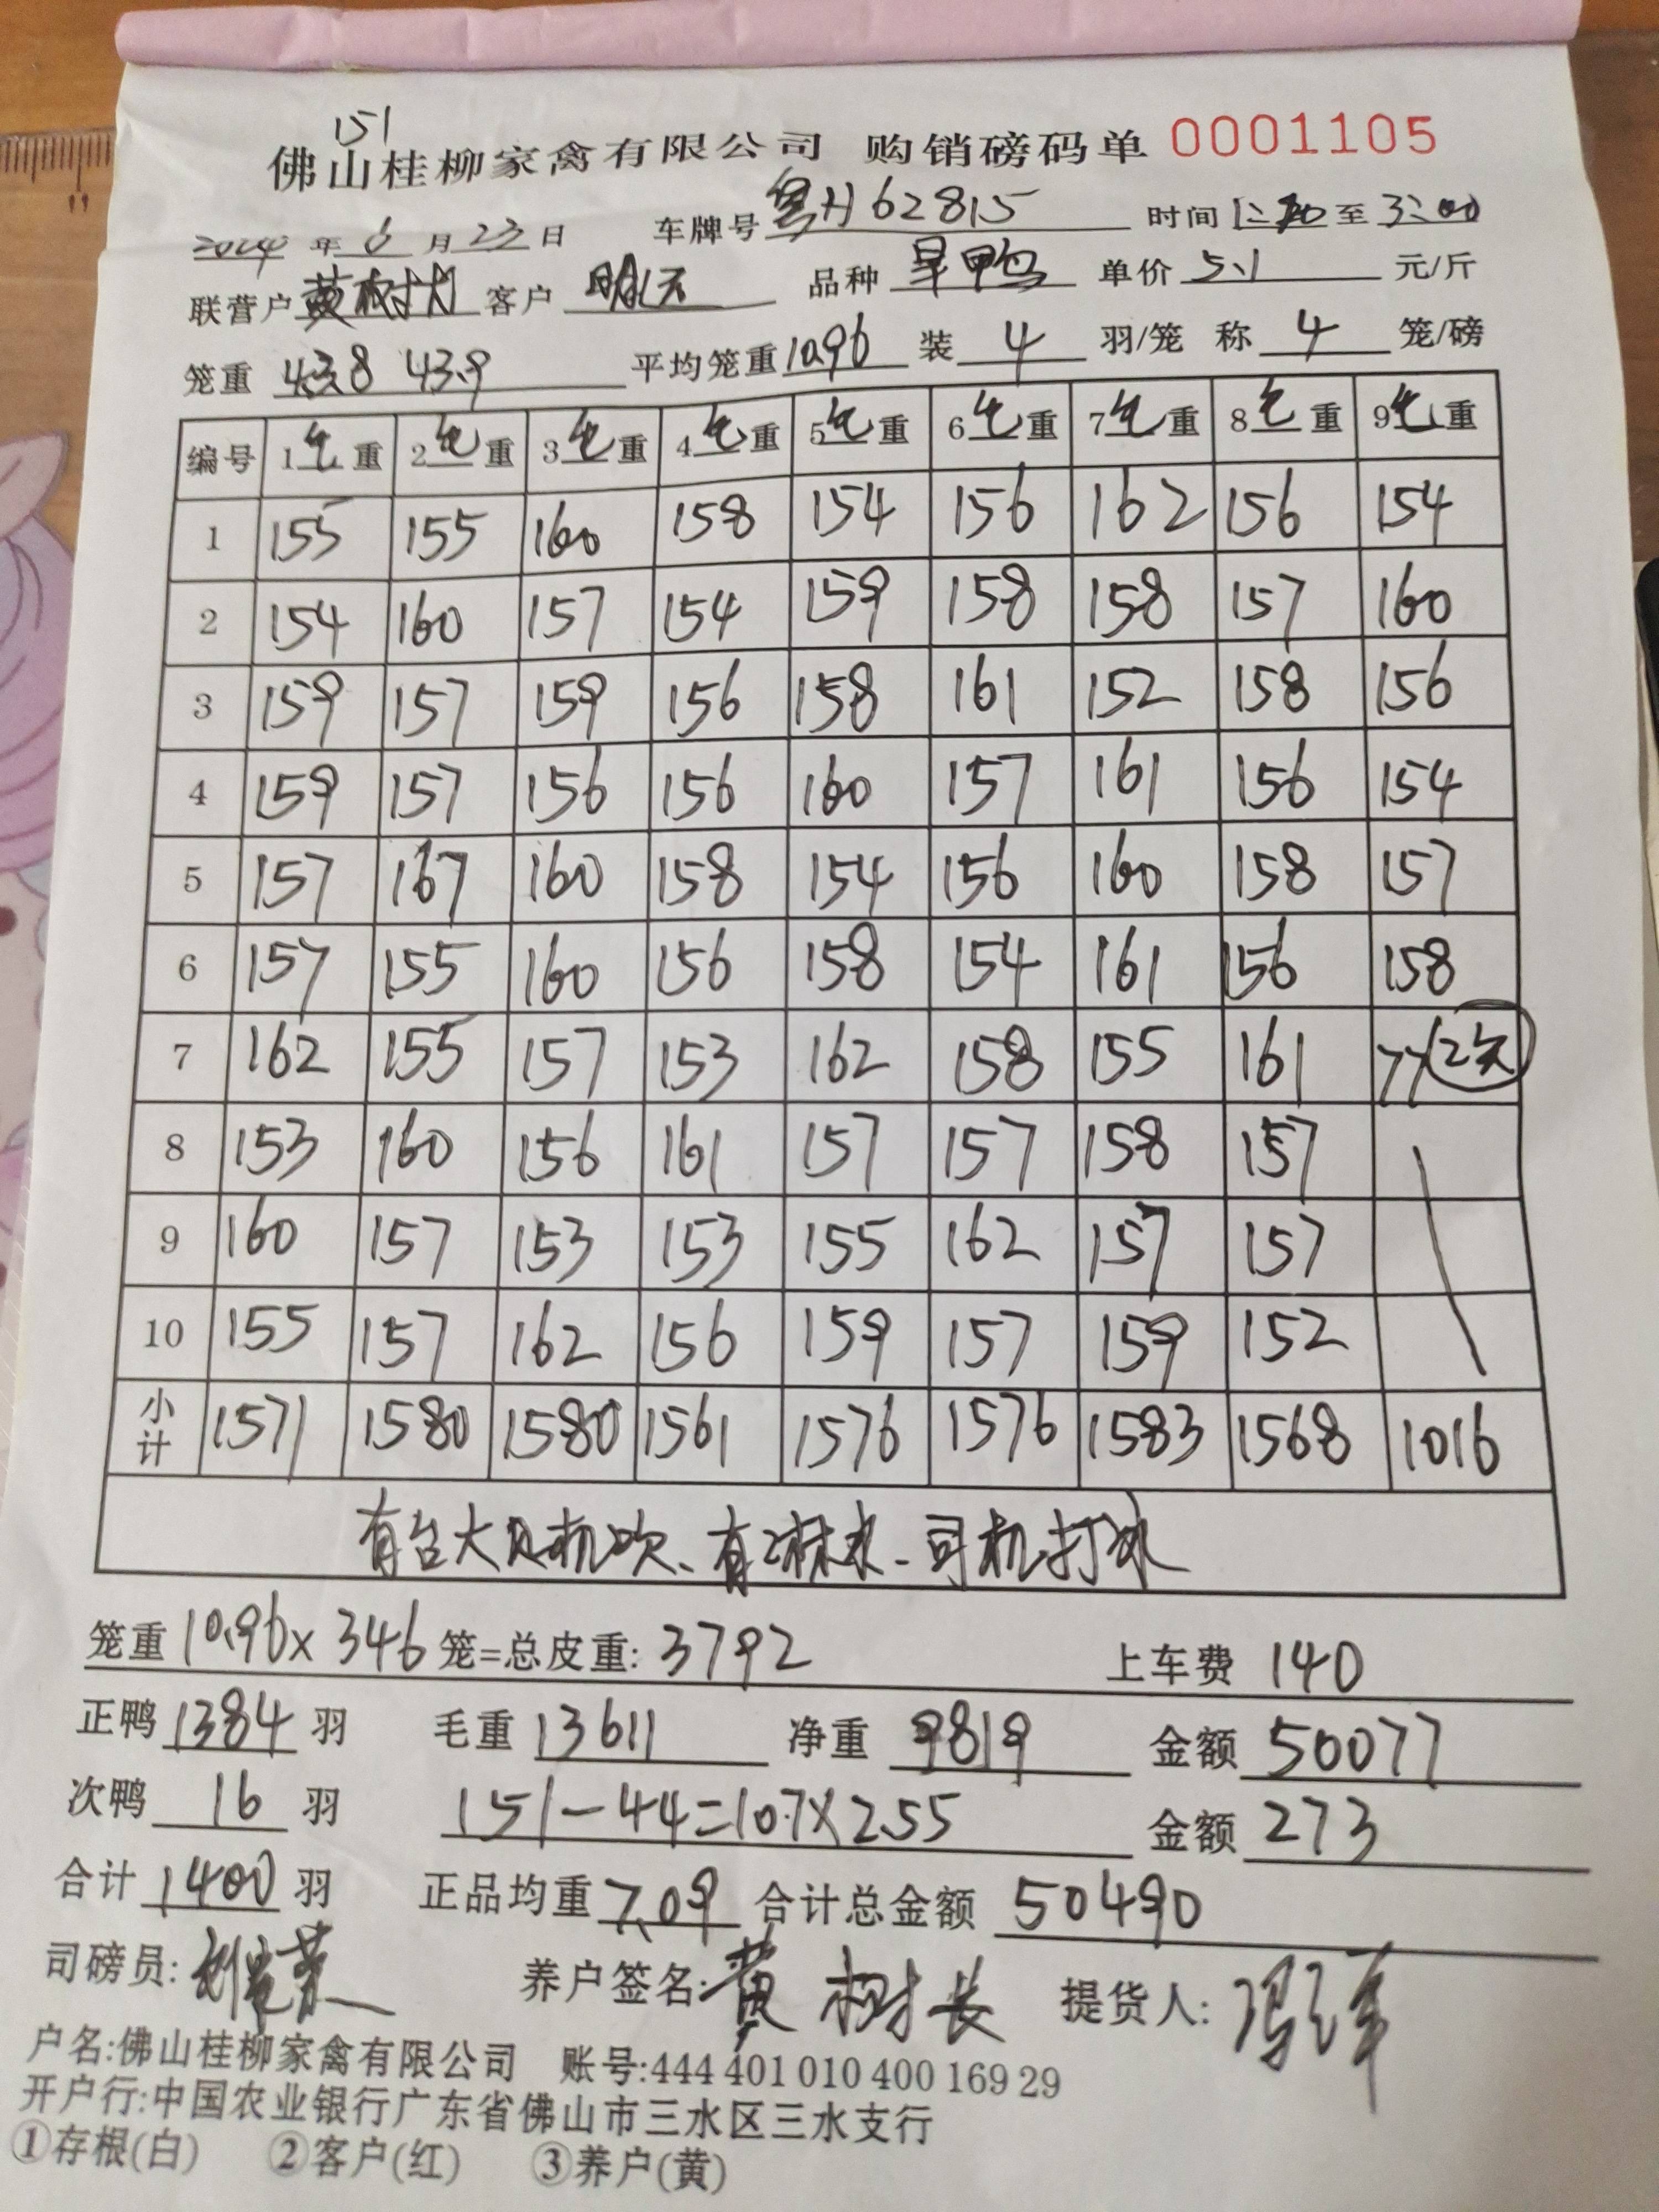 151
佛山桂柳家禽有限公司 购销磅码单 0001105
2024 年 6 月 23 日 车牌号 粤H62815 时间 至 3:00
联营户 黄树 客户 明 品种 旱鸭 单价 5.1 元/斤
笼重 43.8 43.9 平均笼重 10.96 装 4 羽/笼 称 4 笼/磅
编号 1毛重 2毛重 3毛重 4毛重 5毛重 6毛重 7毛重 8毛重 9毛重
1 155 155 160 158 154 156 162 156 154
2 154 160 157 154 159 158 158 157 160
3 159 157 159 156 158 161 152 158 156
4 159 157 156 156 160 157 161 156 154
5 157 167 160 158 154 156 160 158 157
6 157 155 160 156 158 154 161 156 158
7 162 155 157 153 162 158 155 161 77
8 153 160 156 161 157 157 158 157
9 160 157 153 153 155 162 157 157
10 155 157 162 156 159 157 159 152
小计 1571 1580 1580 1561 1576 1576 1583 1568 1016
有台大风机吹、有淋水、司机打冰
笼重 10.96 x 346 笼=总皮重: 3792 上车费 140
正鸭 1384 羽 毛重 13611 净重 9819 金额 50077
次鸭 16 羽 151-44=107x2.55 金额 273
合计 1400 羽 正品均重 7.09 合计总金额 50490
司磅员: 养户签名: 黄树长 提货人:
户名:佛山桂柳家禽有限公司 账号:444 401 010 400 169 29
开户行:中国农业银行广东省佛山市三水区三水支行
①存根(白) ②客户(红) ③养户(黄)